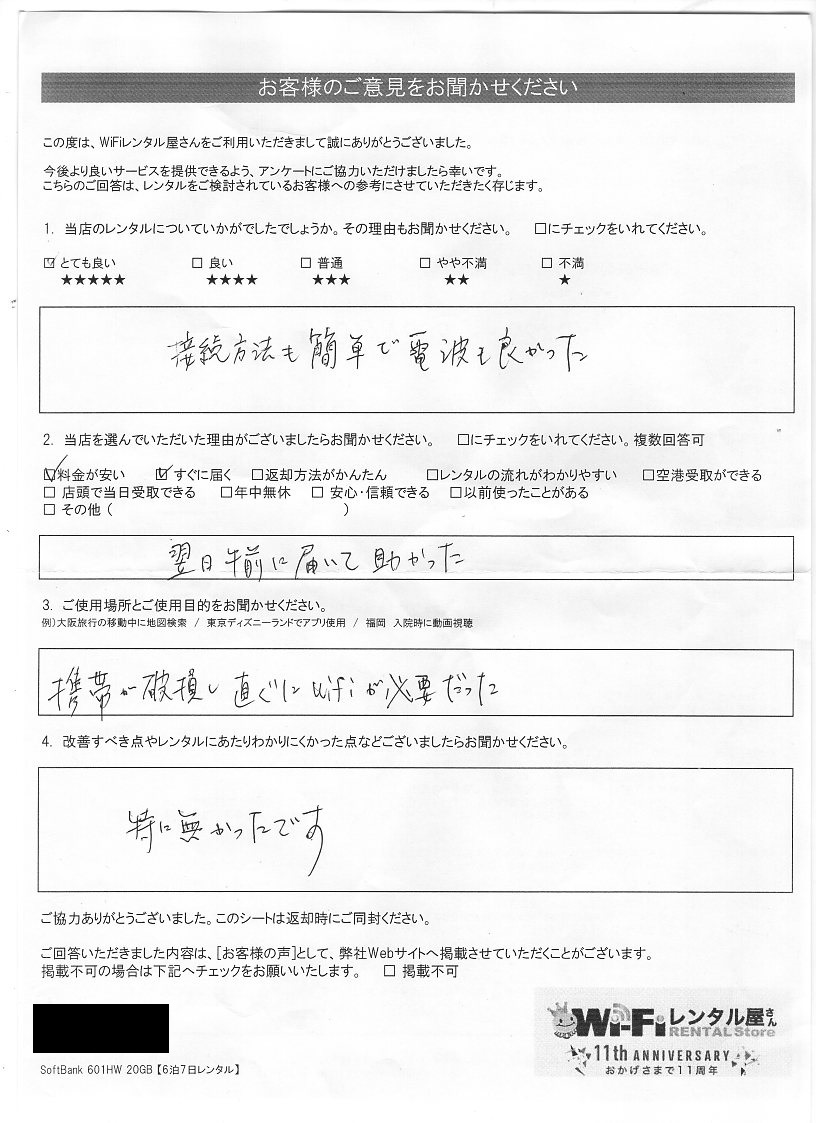 お客様のご意見をお聞かせください
この度は、WiFiレンタル屋さんをご利用いただきまして誠にありがとうございました。
今後より良いサービスを提供できるよう、アンケートにご協力いただけましたら幸いです。
こちらのご回答は、レンタルをご検討されているお客様への参考にさせていただきたく存じます。
1. 当店のレンタルについていかがでしたでしょうか。その理由もお聞かせください。 □にチェックをいれてください。
☑ とても良い □ 良い □ 普通 □ やや不満 □ 不満
★★★★★ ★★★★ ★★★ ★★ ★
接続方法も簡単で電波も良かった
2. 当店を選んでいただいた理由がございましたらお聞かせください。 □にチェックをいれてください。複数回答可
☑料金が安い ☑ すぐに届く □返却方法がかんたん □レンタルの流れがわかりやすい □空港受取ができる
□ 店頭で当日受取できる □年中無休 □ 安心・信頼できる □以前使ったことがある
□ その他 ( )
翌日午前に届いて助かった
3. ご使用場所とご使用目的をお聞かせください。
例)大阪旅行の移動中に地図検索 / 東京ディズニーランドでアプリ使用 / 福岡 入院時に動画視聴
携帯が破損し直ぐにwifiが必要だった
4. 改善すべき点やレンタルにあたりわかりにくかった点などございましたらお聞かせください。
特に無かったです
ご協力ありがとうございました。このシートは返却時にご同封ください。
ご回答いただきました内容は、[お客様の声]として、弊社Webサイトへ掲載させていただくことがございます。
掲載不可の場合は下記へチェックをお願いいたします。 □ 掲載不可
Wi-Fiレンタル屋さん
RENTAL Store
11th ANNIVERSARY
おかげさまで11周年
SoftBank 601HW 20GB【6泊7日レンタル】